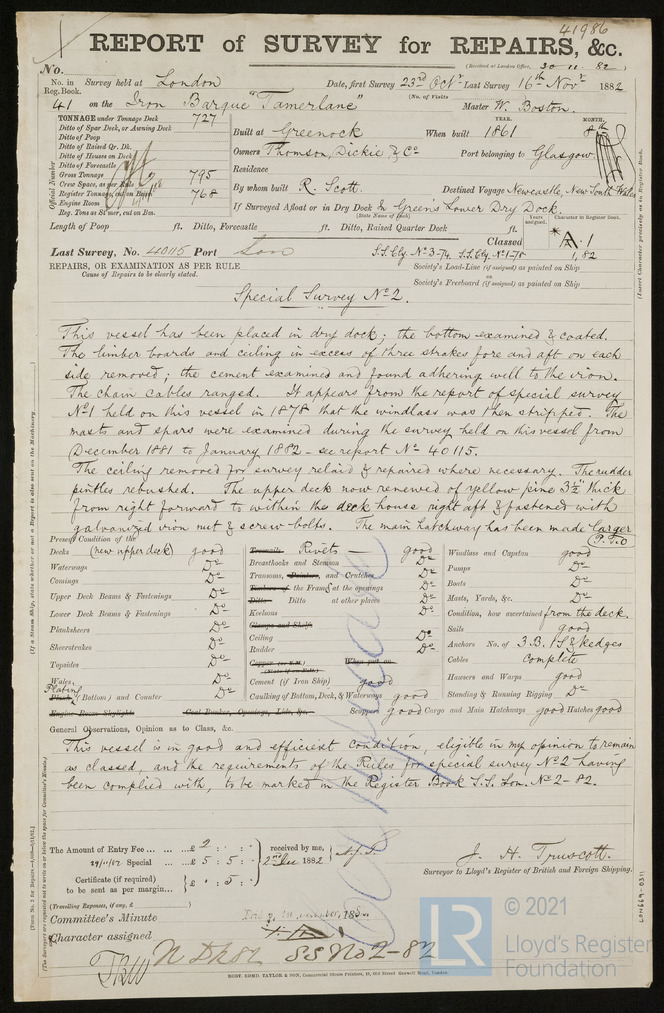 41986
REPORT of SURVEY for REPAIRS, &c.
(Received at London Office, 20 11. 82)
No.
No. in Reg. Book. Survey held at London Date, first Survey 23rd Octr Last Survey 16th Novr 1882
(No. of Visits)
41 on the Iron Barque "Tamerlane" Master W. Boston.
TONNAGE under Tonnage Deck 727
Ditto of Spar Deck, or Awning Deck
Ditto of Poop
Ditto of Raised Qr. Dk.
Ditto of Houses on Deck
Ditto of Forecastle
Gross Tonnage 795
Crew Space, as per Rule
Register Tonnage, cut on Beam 768
Engine Room
Reg. Tons as St'mer, cut on Bm.
Official Number
YEAR. MONTH.
Built at Greenock When built 1861 8th
Owners Thomson, Dickie, & Co Port belonging to Glasgow
Residence
By whom built R. Scott. Destined Voyage Newcastle, New South Wales
If Surveyed Afloat or in Dry Dock In Green's Lower Dry Dock.
(State Name of Dock)
Length of Poop ft. Ditto, Forecastle ft. Ditto, Raised Quarter Deck ft.
Years assigned. Character in Register Book.
Classed A. 1
1,82
Last Survey, No. 40115 Port Lon
S.S. Cly. No. 3-74 S.S. Cly. No. 1-78
REPAIRS, OR EXAMINATION AS PER RULE
Cause of Repairs to be clearly stated.
Society's Load-Line (if assigned) as painted on Ship
Society's Freeboard (if assigned) as painted on Ship
Special Survey No 2.
This vessel has been placed in dry dock; the bottom examined & coated.
The limber boards and ceiling in excess of three strakes fore and aft on each
side removed; the cement examined and found adhering well to the iron.
The chain cables ranged. It appears from the report of special survey
No 1 held on this vessel in 1878 that the windlass was then stripped. The
masts and spars were examined during the survey held on this vessel from
December 1881 to January 1882 - see report No 40115.
The ceiling removed for survey relaid & repaired where necessary. The rudder
pintles rebushed. The upper deck now renewed of yellow pine 3½" thick
from right forward to within the deck house right aft & fastened with
galvanized iron nut & screw bolts. The main hatchway has been made larger
P.T.O
Present Condition of the
Decks (new upper deck) good
Waterways Do
Comings Do
Upper Deck Beams & Fastenings Do
Lower Deck Beams & Fastenings Do
Planksheers Do
Sheerstrakes Do
Topsides Do
Wales Do
Plating (Bottom) and Counter Do
Engine Room Skylights Coal Bunker, Openings, Lids, &c.
Treenails Rivets good
Breasthooks and Stemson Do
Transoms, Pointers, and Crutches Do
Timbers of the Frame at the openings Do
Ditto Ditto at other places Do
Keelsons Do
Clamps and Shelfs
Ceiling Do
Rudder Do
Copper When put on
Cement (if Iron Ship) good
Caulking of Bottom, Deck, & Waterways good
Scuppers good Cargo and Main Hatchways good Hatches good
Windlass and Capstan good
Pumps Do
Boats Do
Masts, Yards, &c. Do
Condition, how ascertained from the deck.
Sails good
Anchors No. of 3.B. 1S & kedges
Cables complete
Hawsers and Warps good
Standing & Running Rigging Do
General Observations, Opinion as to Class, &c.
This vessel is in good and efficient condition, eligible in my opinion to remain
as classed, and the requirements of the Rules for special survey No 2 having
been complied with, to be marked in the Register Book S.S. Lon. No 2-82.
The Amount of Entry Fee £ 2 : :
29/11/82 Special £ 5 : 5 :
Certificate (if required) to be sent as per margin £ : 5 :
received by me,
2nd Dec 1882
(Travelling Expenses, if any, £ )
J. H. Truscott.
Surveyor to Lloyd's Register of British and Foreign Shipping.
Committee's Minute
Character assigned
N Dk 82 SS No 2-82
LON669-0311
© 2021
LR
Lloyd's Register
Foundation